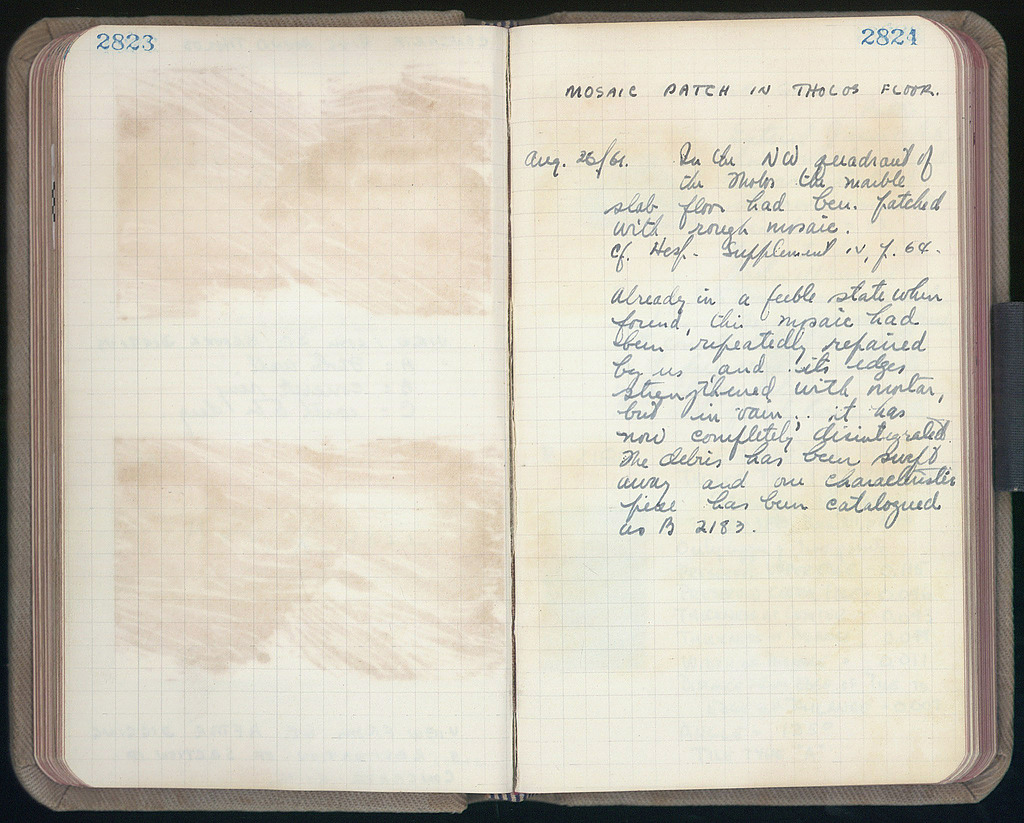 2823
2824
MOSAIC PATCH IN THOLOS FLOOR.
Aug. 26/61. In the NW quadrant of
the Tholos the marble
slab floor had been patched
with rough mosaic.
Cf. Hesp. Supplement IV, p. 64.
Already in a feeble state when
found, this mosaic had
been repeatedly repaired
by us and its edges
strengthened with mortar,
but in vain; it has
now completely disintegrated.
The debris has been swept
away and one characteristic
piece has been catalogued
as B 2183.